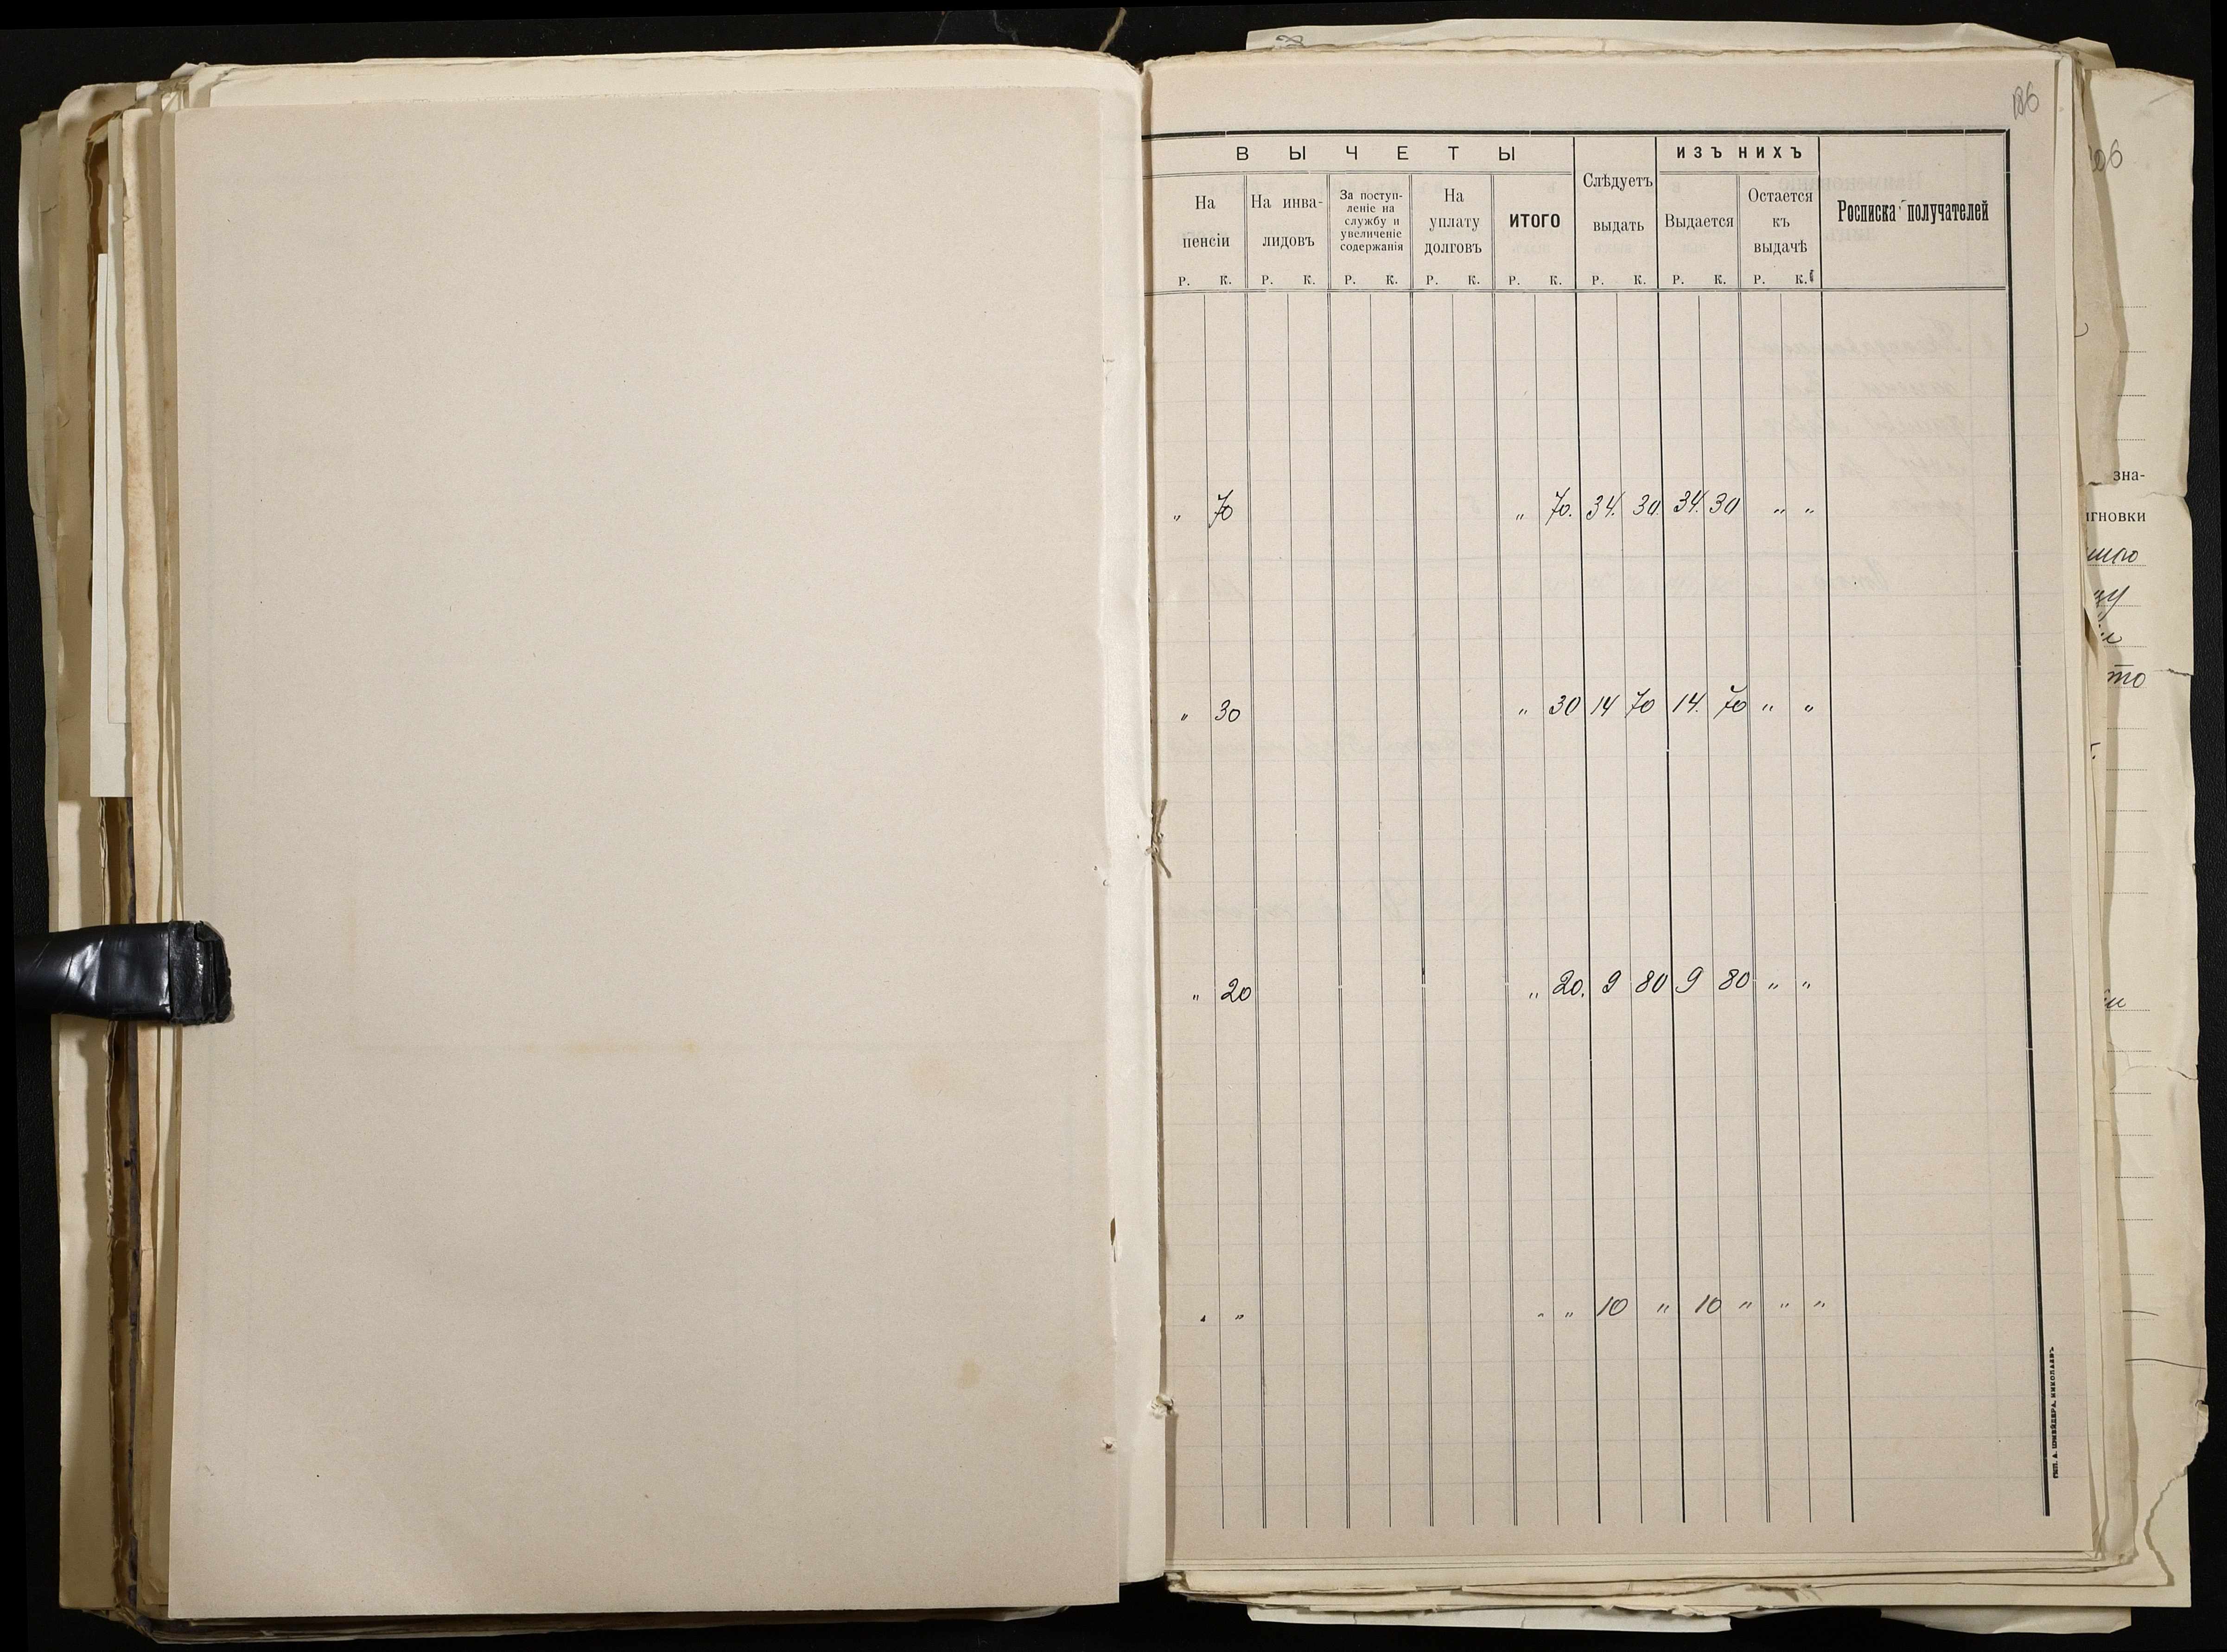 186
ВЫЧЕТЫ
ИЗЪ НИХЪ
На пенсіи
На инва-лидовъ
За поступ-
леніе на
службу и
увеличеніе
содержанія
На уплату долговъ
ИТОГО
Слѣдуетъ выдать
Выдается
Остается къ выдачѣ
Росписка получателей
Р. К. Р. К. Р. К. Р. К. Р. К. Р. К. Р. К. Р. К.
„ 70 „ 70. 34. 30 34. 30 „ „
„ 30 „ 30 14 70 14. 70 „ „
„ 20 „ 20. 9 80 9 80 „ „
„ „ „ „ 10 „ 10 „ „ „
ТИП. А. ШНЕЙДЕРА, НИКОЛАЕВЪ
зна-
игновки
то